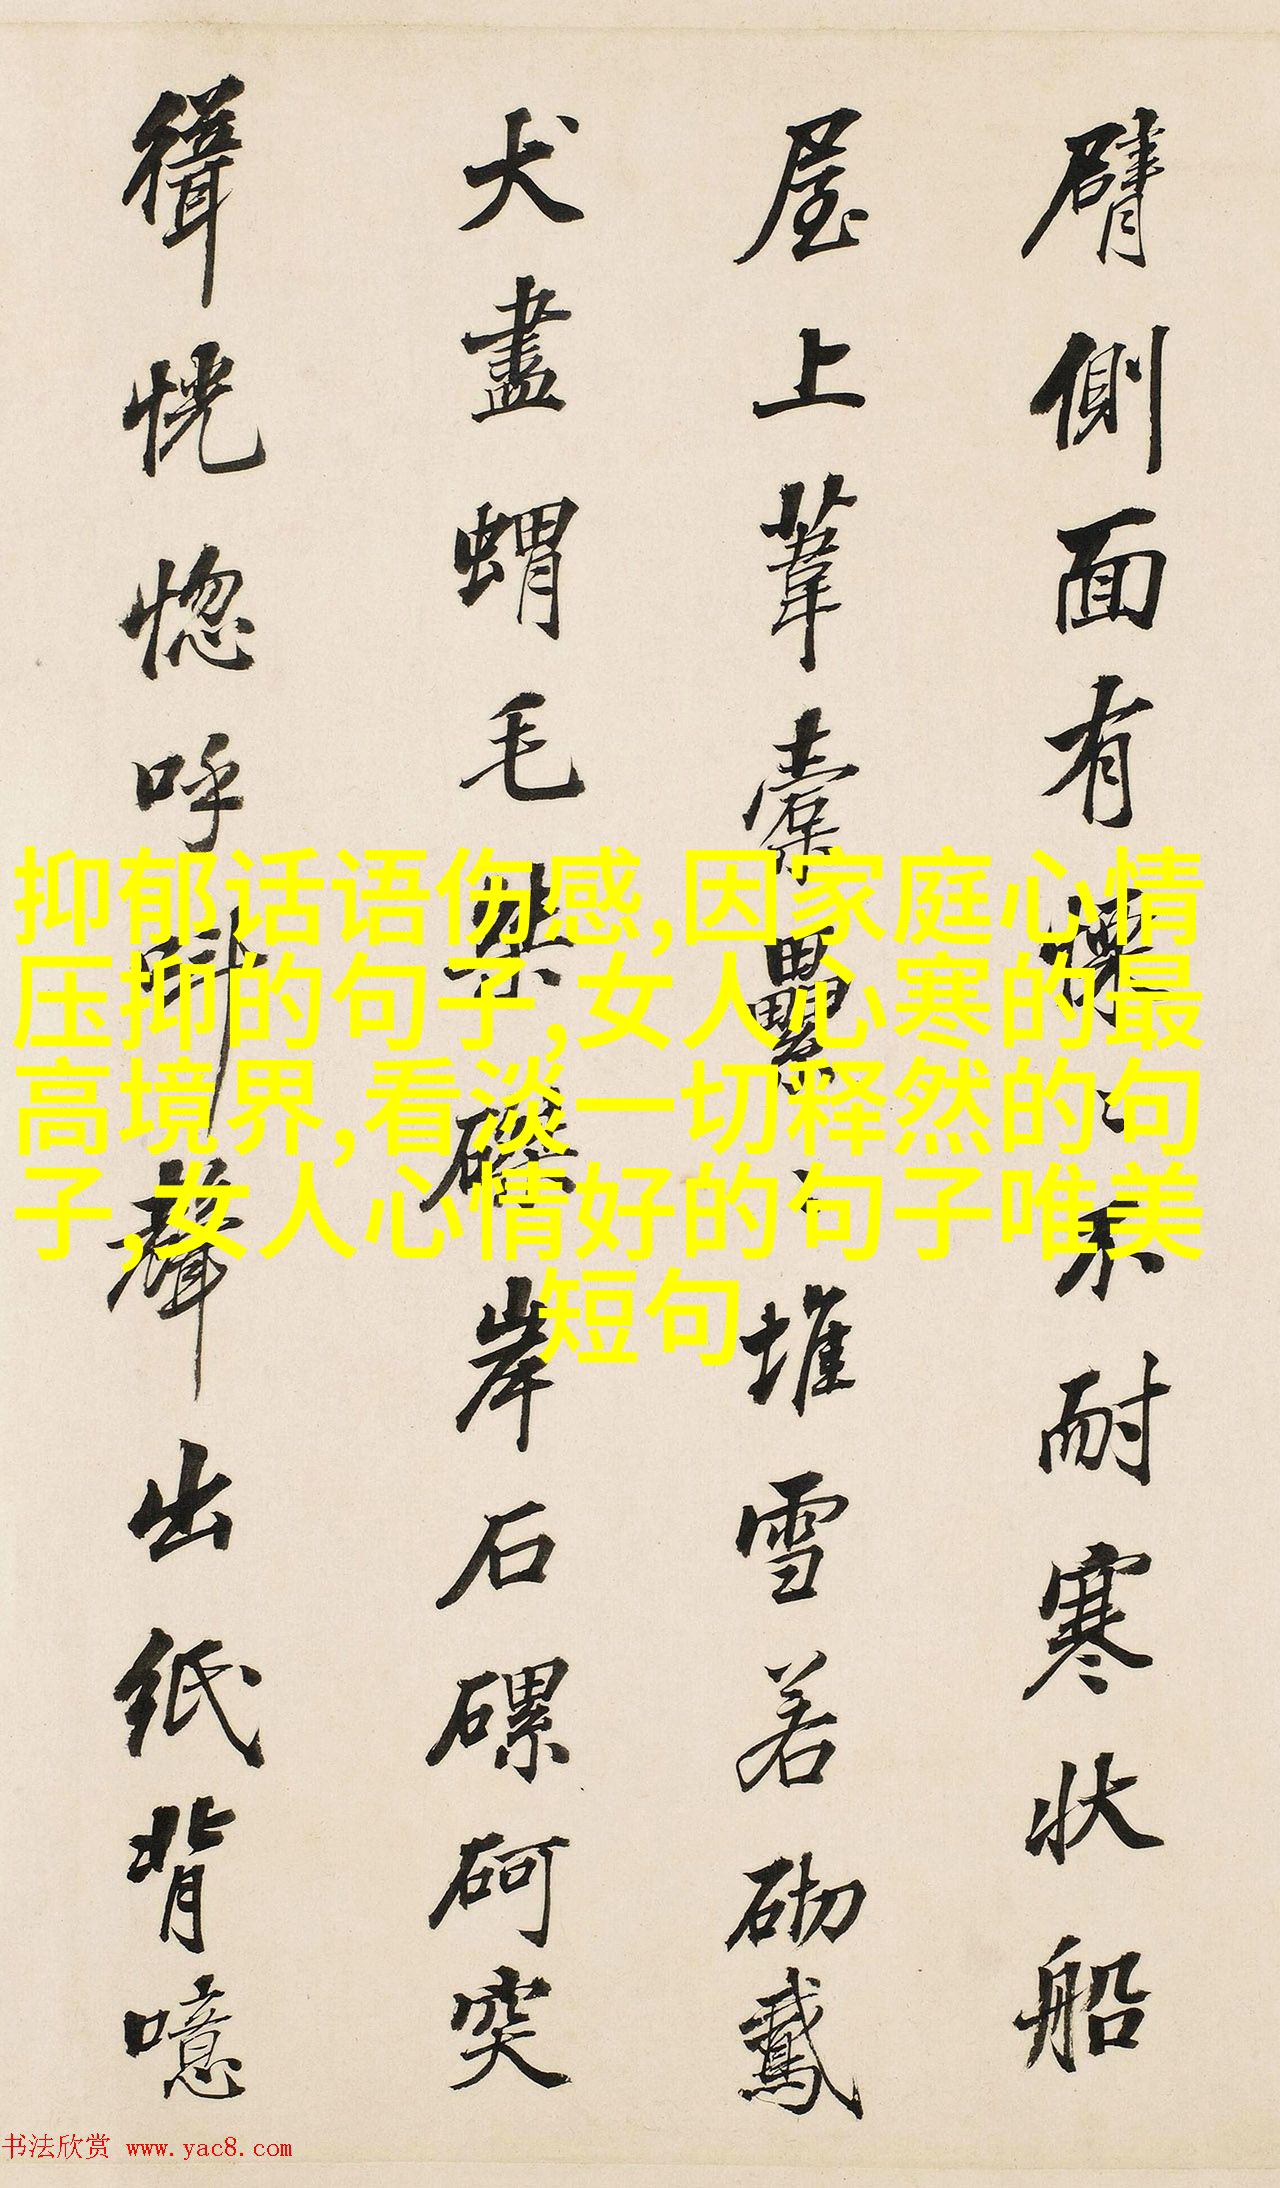 臂側面有慄〻不耐寒状船
屋上葦藁纍〻堆雪若砌鵞
犬盡蝟毛磔岸石磥砢突
緝恍惚呼叫聲出紙背噫
抑郁话语伤感,因家庭心情
压抑的句子,女人心寒的最
高境界,看淡一切释然的句
子,女人心情好的句子唯美
短句
书法欣赏 www.yac8.com